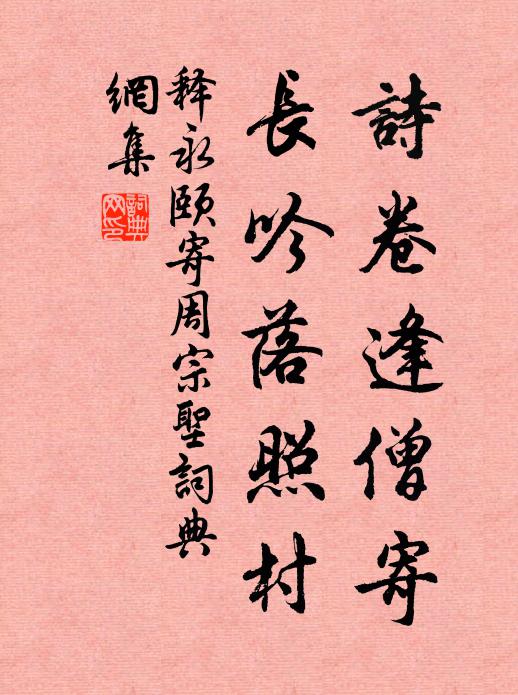 詩卷逢僧寄
長吟落照村
释永頤寄周宗聖詞典
網集
詞典
网印